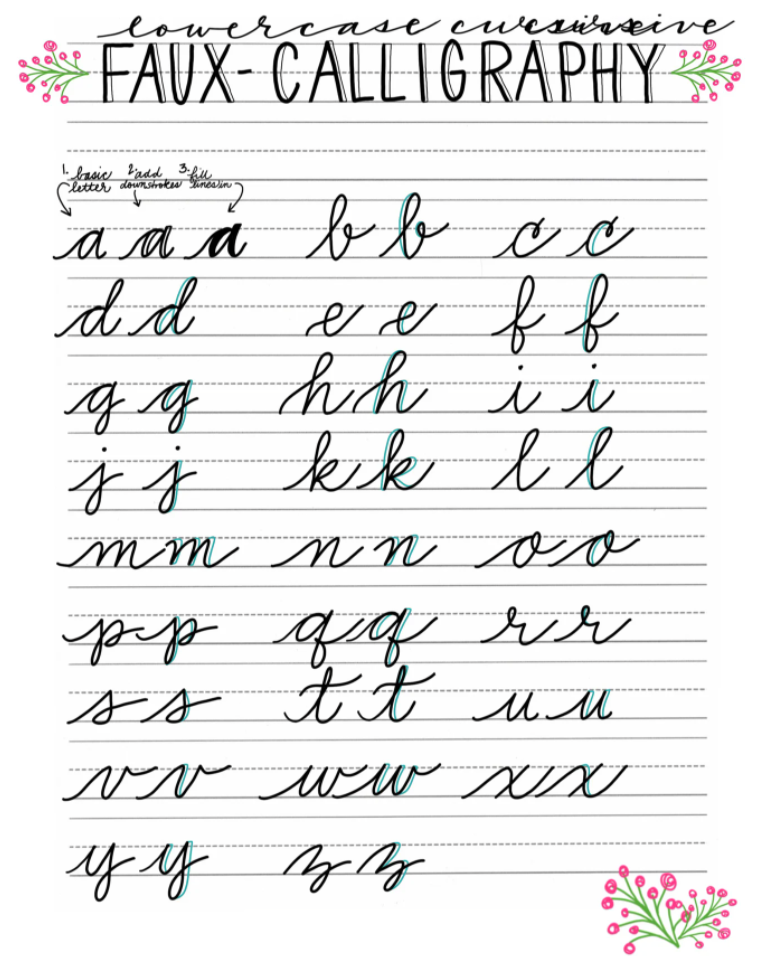 lowercase cursive
FAUX-CALLIGRAPHY
1. basic letter 2. add downstrokes 3. fill lines in
a a a b b c c
d d e e f f
g g h h i i
j j k k l l
m m n n o o
p p q q r r
s s t t u u
v v w w x x
y y z z